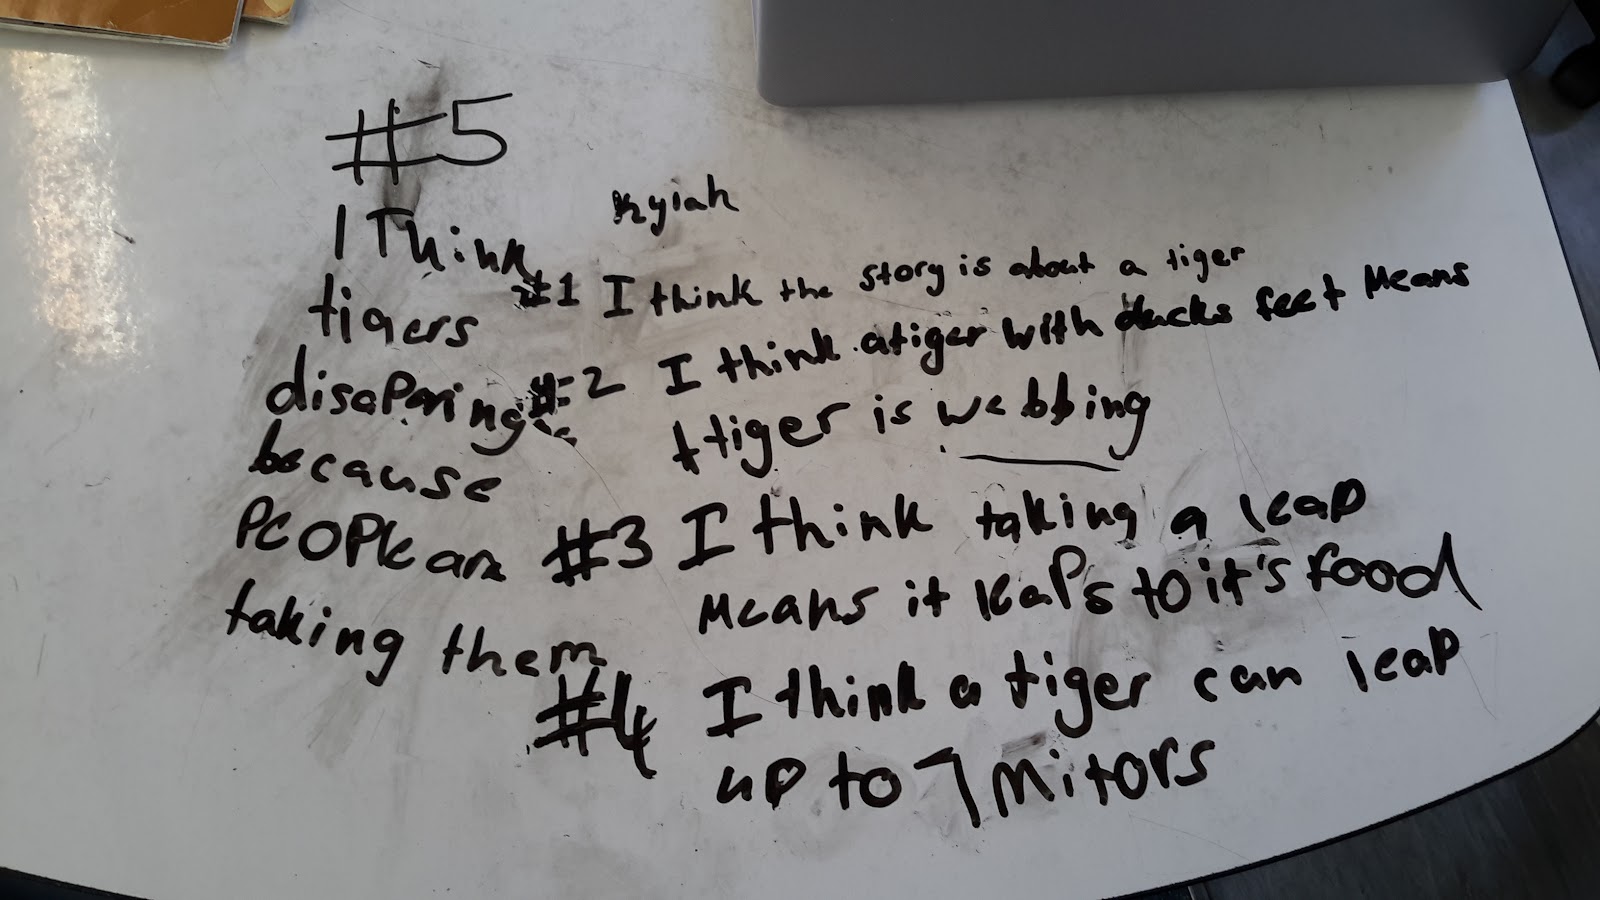 Kyiah
#1 I think the story is about a tiger
#2 I think a tiger with ducks feet Means
ttiger is webbing
#3 I think taking a leap
Means it leaps to it's food
#4 I think a tiger can leap
up to 7 mitors
#5
I Think
tigers
disaPering
because
PeoPle are
taking them